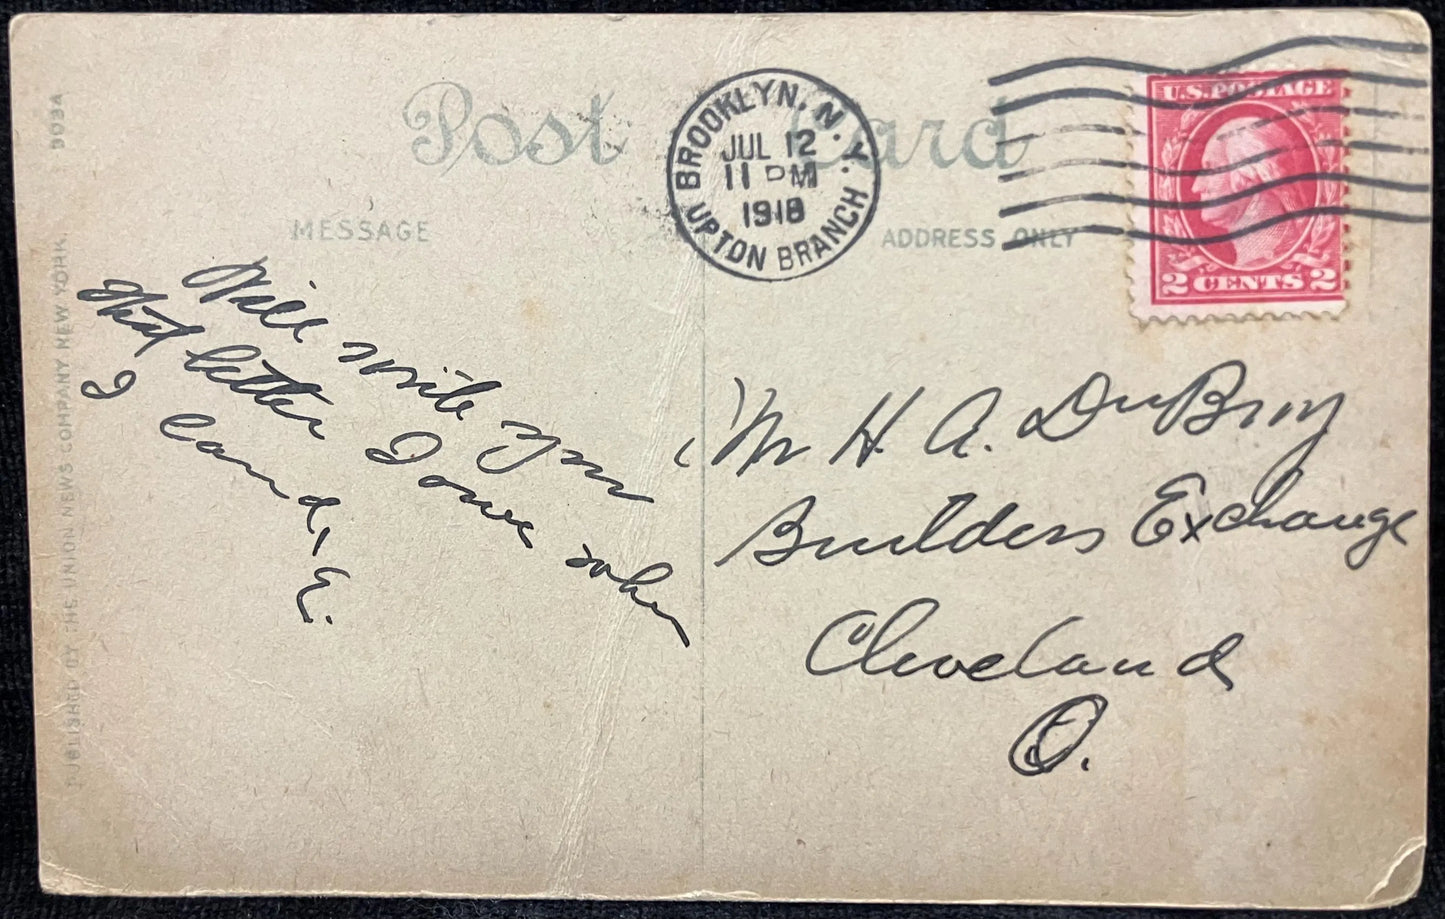 Post Card
BROOKLYN, N.Y.
JUL 12
11 PM
1918
UPTON BRANCH
U.S. POSTAGE
2 CENTS 2
MESSAGE
ADDRESS ONLY
Will write you
that letter I owe when
I can
E.
Mr H. A. DuBroy
Builders Exchange
Cleveland
O.
903A
PUBLISHED BY THE UNION NEWS COMPANY NEW YORK